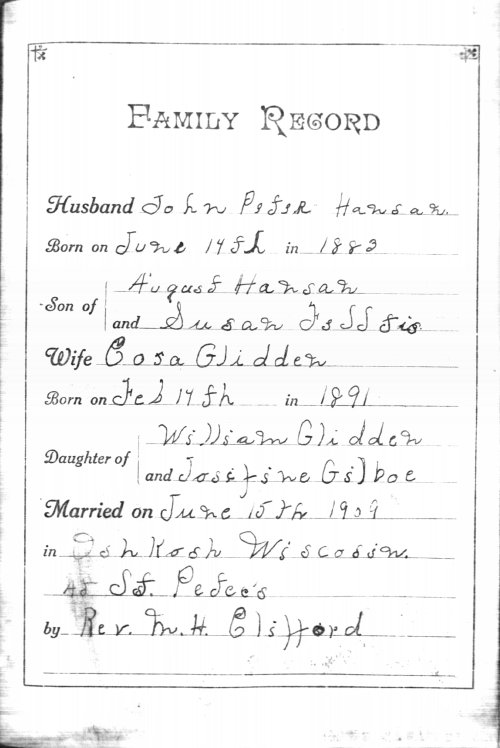 FAMILY RECORD
Husband John Peter Hansan.
Born on June 14th in 1883
August Hansan
Son of
and Susan
Wife Cora Glidden
Born on Feb 14th in 1891
William Glidden
Daughter of
and Josefine Gilboe
Married on June 15th 1909
in Oshkosh Wiscossin.
At St. Peter's
by Rev. M. H. Clifford